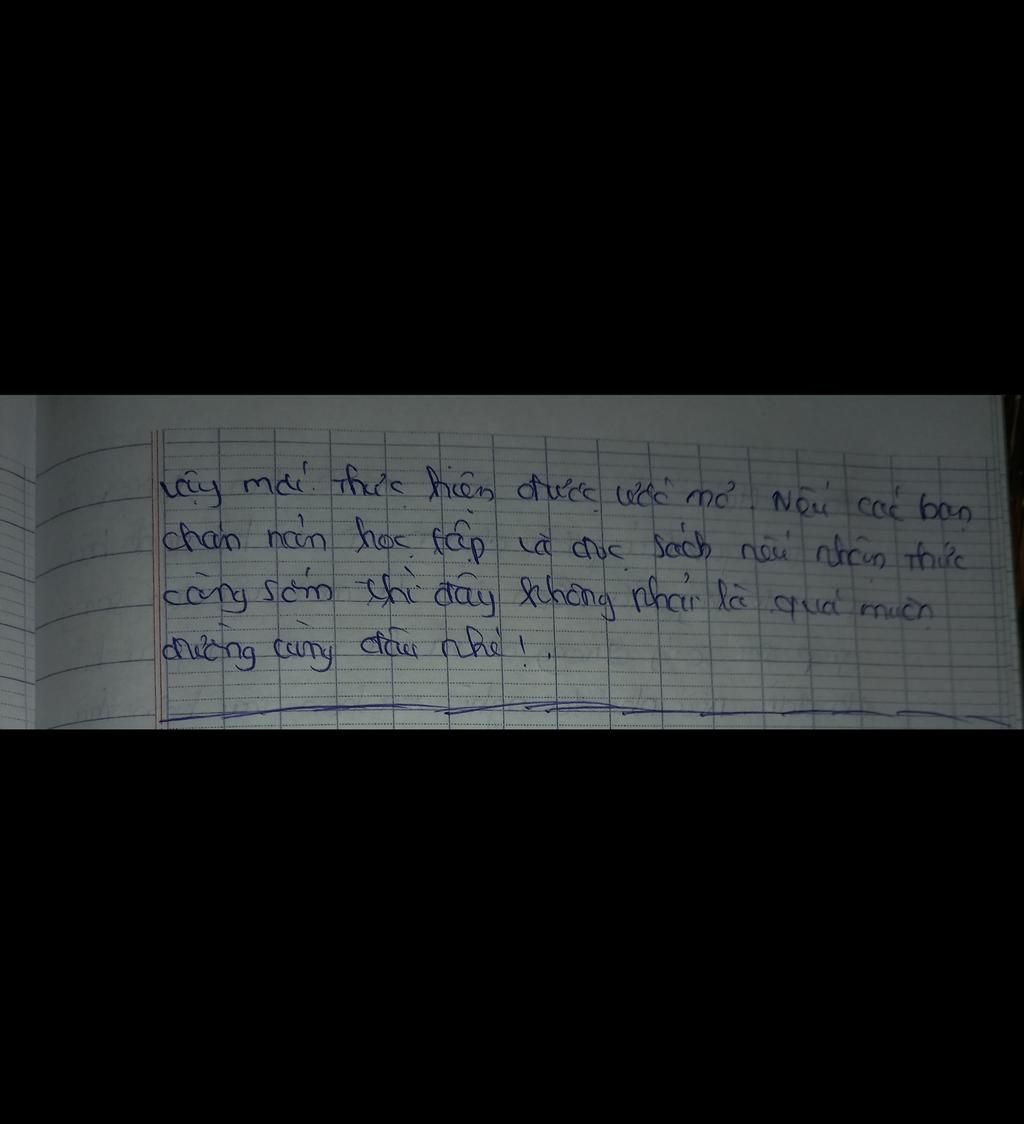 vậy mới thực hiện được ước mơ. Nếu các bạn
chán nản học tập và đọc sách nếu nhận thức
càng sớm thì đây không phải là quá muộn
đường cùng đâu nhé!.